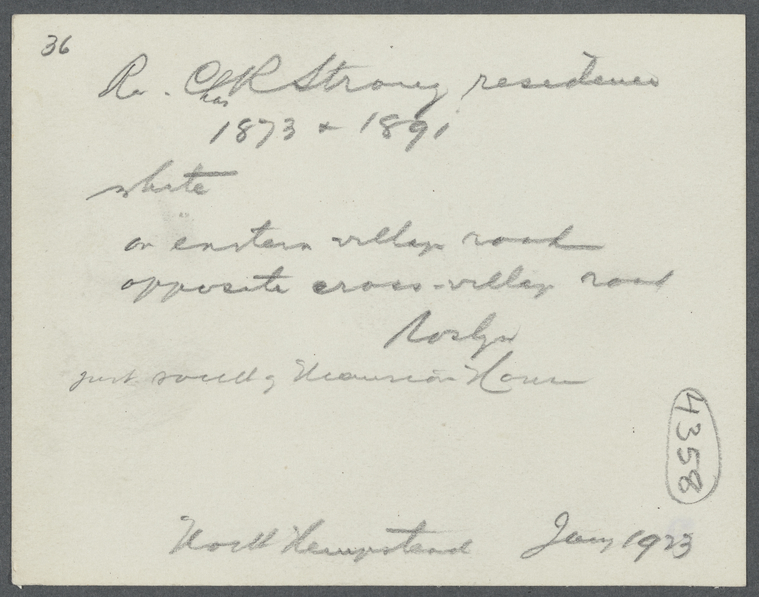 36
Re. Chas R Strong residence
1873 & 1891
white
on eastern village road
opposite cross-village road
Roslyn
just south of Mansion House
4358
North Hempstead Jany 1923